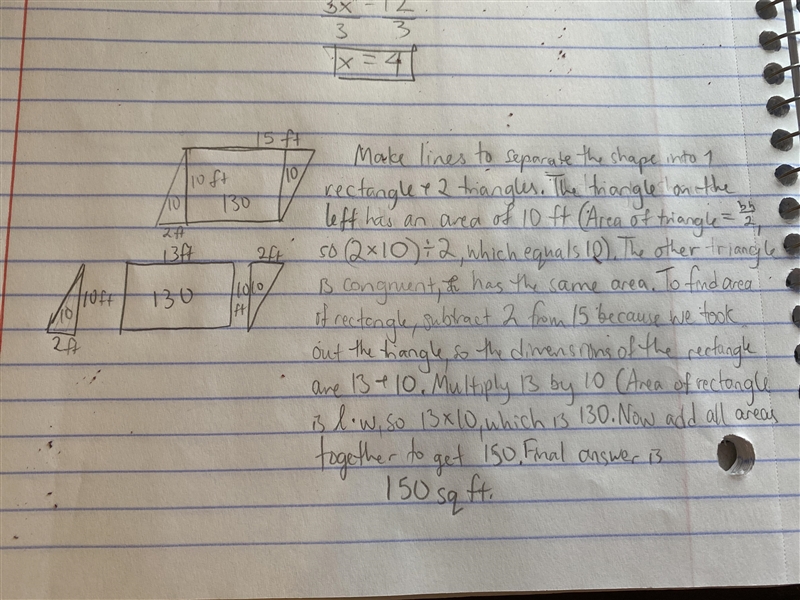 3x = 12
3 3
x = 4
15 ft
10 ft
10
10
130
2ft
13ft
2ft
10ft
10
130
10 ft
10
2ft
Make lines to separate the shape into 1
rectangle + 2 triangles. The triangle on the
left has an area of 10 ft (Area of triangle = bh/2,
so (2×10)÷2, which equals 10). The other triangle
is congruent, has the same area. To find area
of rectangle, subtract 2 from 15 because we took
out the triangle, so the dimensions of the rectangle
are 13 + 10. Multiply 13 by 10 (Area of rectangle
is l·w, so 13×10, which is 130. Now add all areas
together to get 150. Final answer is
150 sq ft.